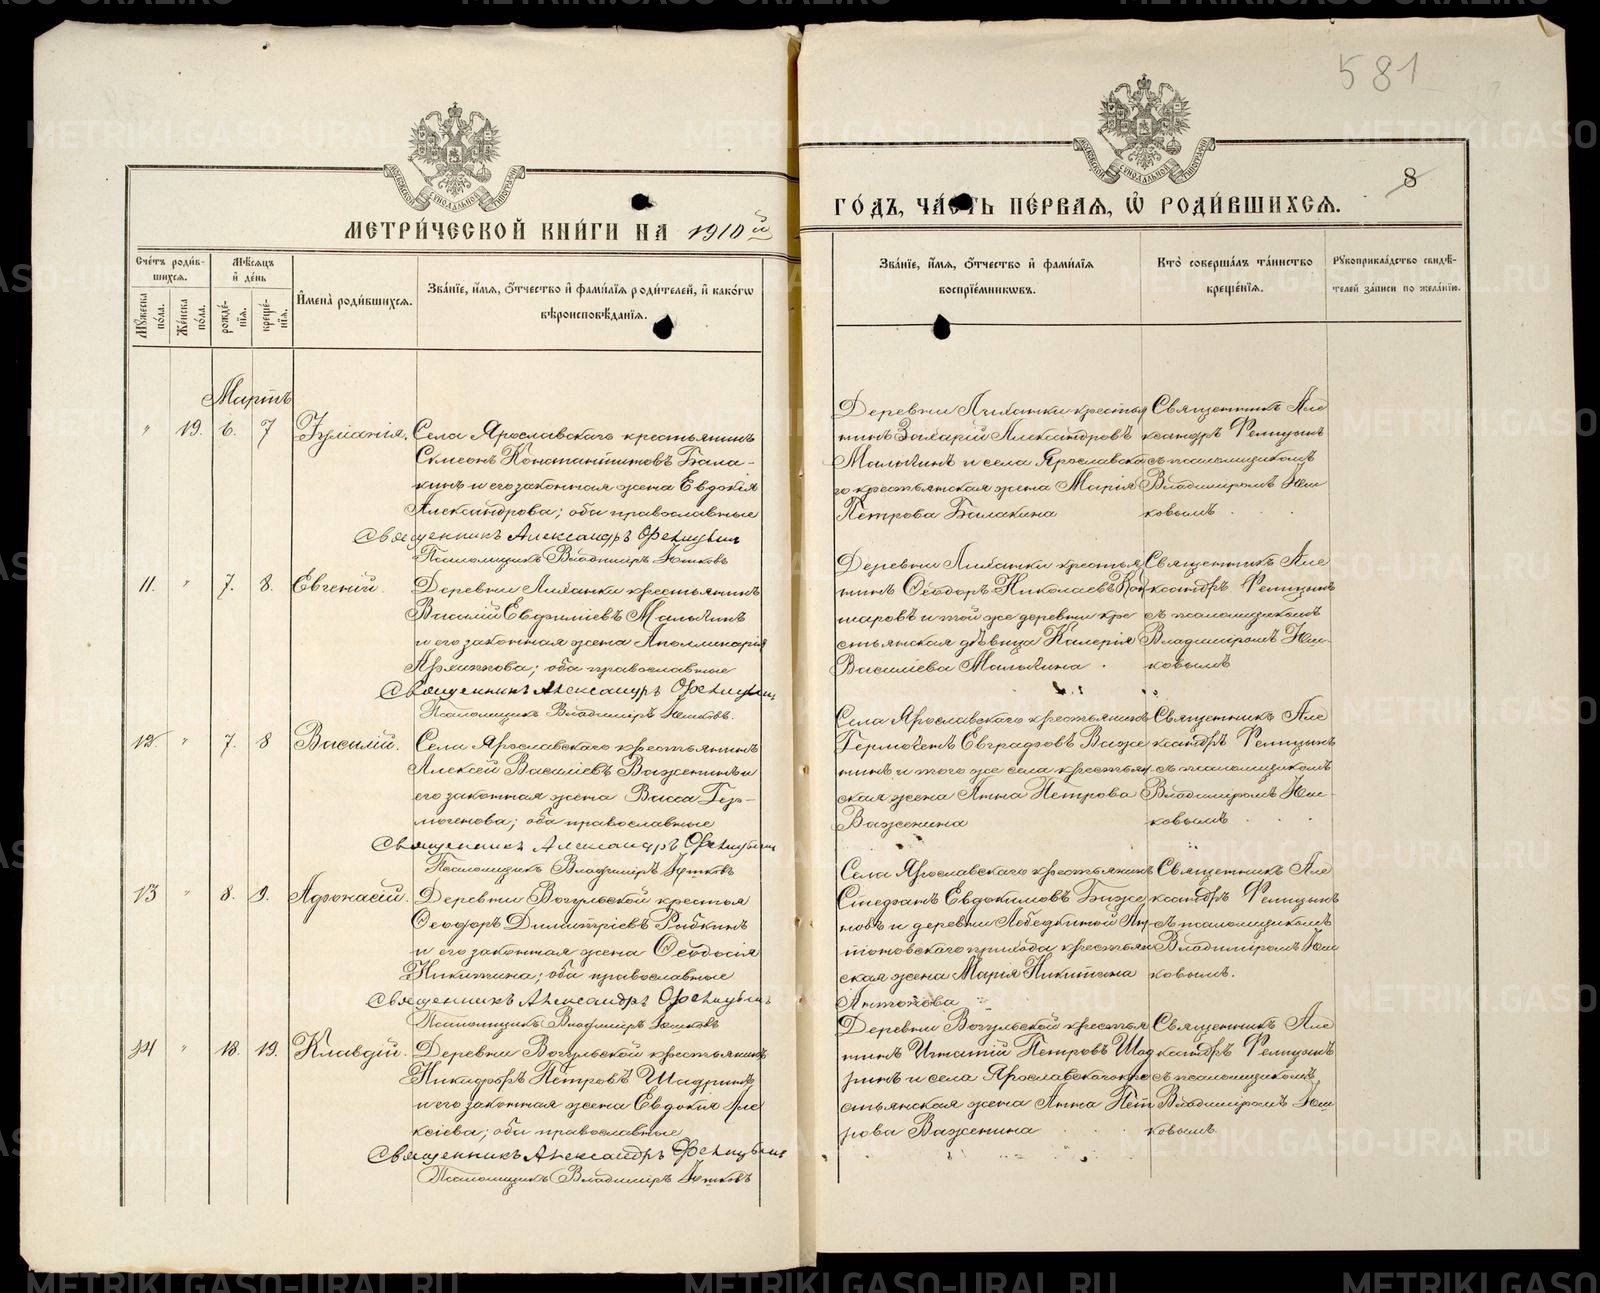 581
8
МЕТРИ́ЧЕСКОЙ КНИ́ГИ НА 1910й
ГО́ДЪ, ЧА́СТЬ ПЕ́РВАЯ, Ѡ РОДИ́ВШИХСЯ.
Сче́тъ роди́в-
шихся.
Мꙋ́жеска по́ла.
Же́нска по́ла.
Мѣ́сяцъ
и҆ де́нь
рожде́-
нїя.
креще́-
нїя.
И҆мена̀ роди́вшихся.
Зва́нїе, и҆́мя, ѻ҆́тчество и҆ фами́лїя роди́телей, и҆ како́гѡ
вѣроисповѣ́данїя.
Зва́нїе, и҆́мя, ѻ҆́тчество и҆ фами́лїя
воспрїе́мникѡвъ.
Кто̀ соверша́лъ та́инство
креще́нїя.
Рꙋкоприкла́дство свидѣ́-
телей за́писи по жела́нїю.
Мартъ
" 19. 6. 7 Іуліанія.
Села Ярославскаго крестьянинъ
Симеонъ Константиновъ Бала-
кинъ и его законная жена Евдокія
Александрова; оба православные
Священникъ Александръ Ѳелицынъ
Псаломщикъ Владиміръ Юшковъ
Деревни Лиханки крестья
нинъ Захарій Александровъ
Малыгинъ и села Ярославска
го крестьянская жена Марія
Петрова Балакина
Священникъ Але
ксандръ Фелицынъ
съ псаломщикомъ
Владиміромъ Юш
ковымъ
11. " 7. 8. Евгеній.
Деревни Лиханки крестьянинъ
Василій Евфиміевъ Малыгинъ
и его законная жена Аполлинарія
оба православные
Священникъ Александръ Ѳелицынъ
Псаломщикъ Владиміръ Юшковъ.
Деревни Лиханки крестья
нинъ Ѳеодоръ Николаевъ
шаровъ и той же деревни кре
стьянская дѣвица Калерія
Василіева Малыгина
Священникъ Але
ксандръ Фелицынъ
съ псаломщикомъ
Владиміромъ Юш-
ковымъ
12. " 7. 8 Василій.
Села Ярославскаго крестьянинъ
Алексѣй Василіевъ Важенинъ и
его законная жена Васса Гер-
могенова; оба православные
Священникъ Александръ Ѳелицынъ
Псаломщикъ Владиміръ Юшковъ
Села Ярославскаго крестьянинъ
Гермогенъ Евграфовъ Важе
нинъ и того же села крестьян
ская жена Анна Петрова
Важенина
Священникъ Але
ксандръ Фелицынъ
съ псаломщикомъ
Владиміромъ Юш-
ковымъ
13 " 8. 9. Афонасій.
Деревни Вогульской крестья
Ѳеодоръ Димитріевъ Рыбкинъ
и его законная жена Ѳеодосія
Никитина; оба православные
Священникъ Александръ Ѳелицынъ
Псаломщикъ Владиміръ Юшковъ
Села Ярославскаго крестьянинъ
Стефанъ Евдокимовъ Бѣже
новъ и деревни Лебедкиной
тоновскаго прихода крестьян
ская жена Марія Никитина
Антонова
Священникъ Але
ксандръ Фелицынъ
съ псаломщикомъ
Владиміромъ Юш
ковымъ.
14 " 18. 19. Клавдій.
Деревни Вогульской крестьянинъ
Никифоръ Петровъ Шадринъ
и его законная жена Евдокія Але
ксіева; оба православные
Священникъ Александръ Ѳелицынъ
Псаломщикъ Владиміръ Юшковъ
Деревни Вогульской крестья
нинъ Игнатій Петровъ Шад
ринъ и села Ярославскаго кре
стьянская жена Анна Пет
рова Важенина
Священникъ Але
ксандръ Фелицынъ
съ псаломщикомъ
Владиміромъ Юш
ковымъ.
METRIKI.GASO-URAL.RU